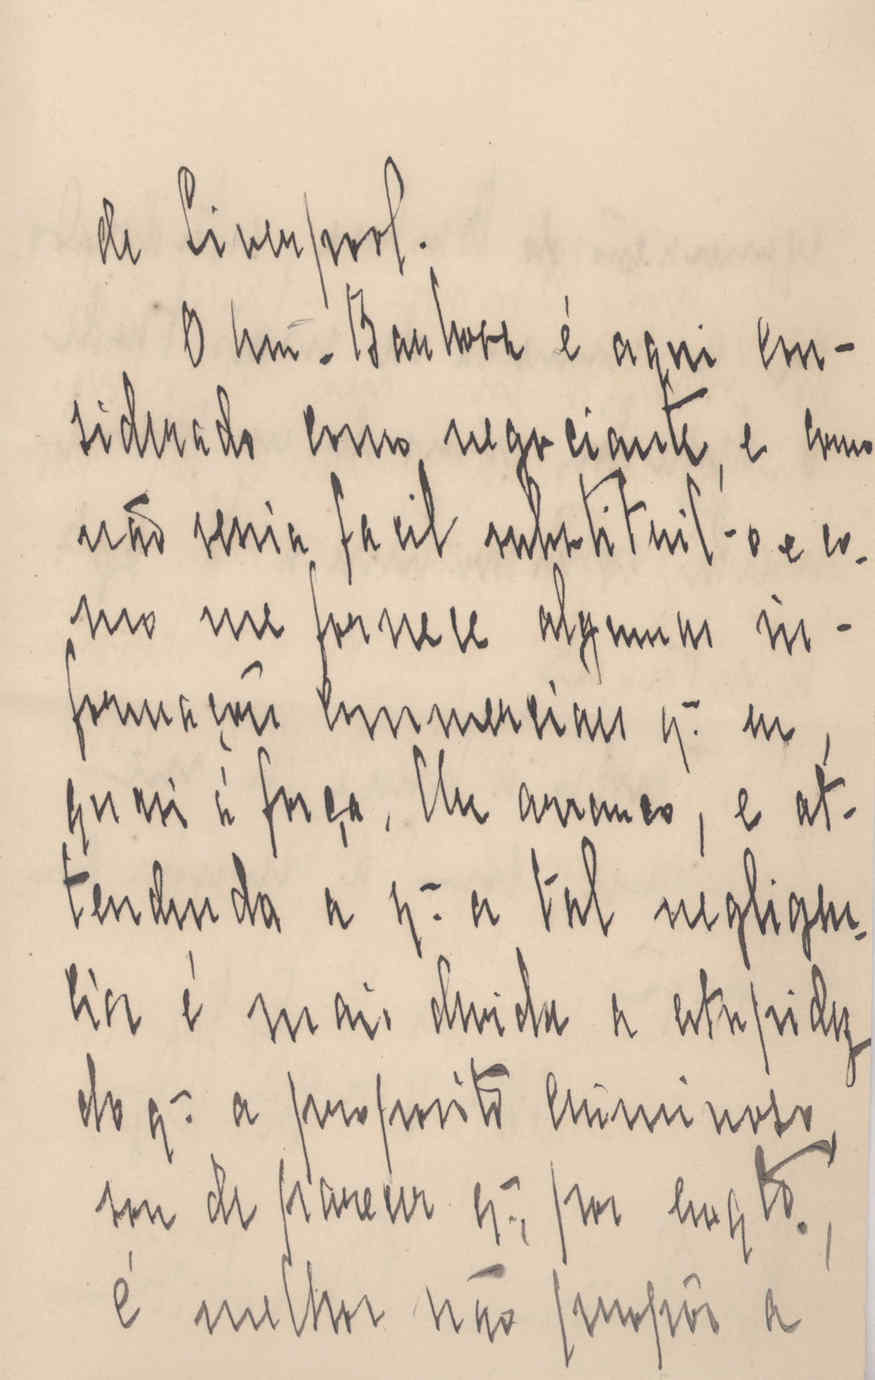 de Liverpool.
O snr. é aqui con-
siderado como negociante, e como
não seria facil substituil-o e co-
mo me fornece algumas in-
formações commerciaes q. eu,
quasi á força, lhe arranco, e at-
tendendo a q. a tal negligen-
cia é mais devida a estupidez
do q. a proposito criminoso,
sou de parecer q., por emqto.,
é melhor não propôr a